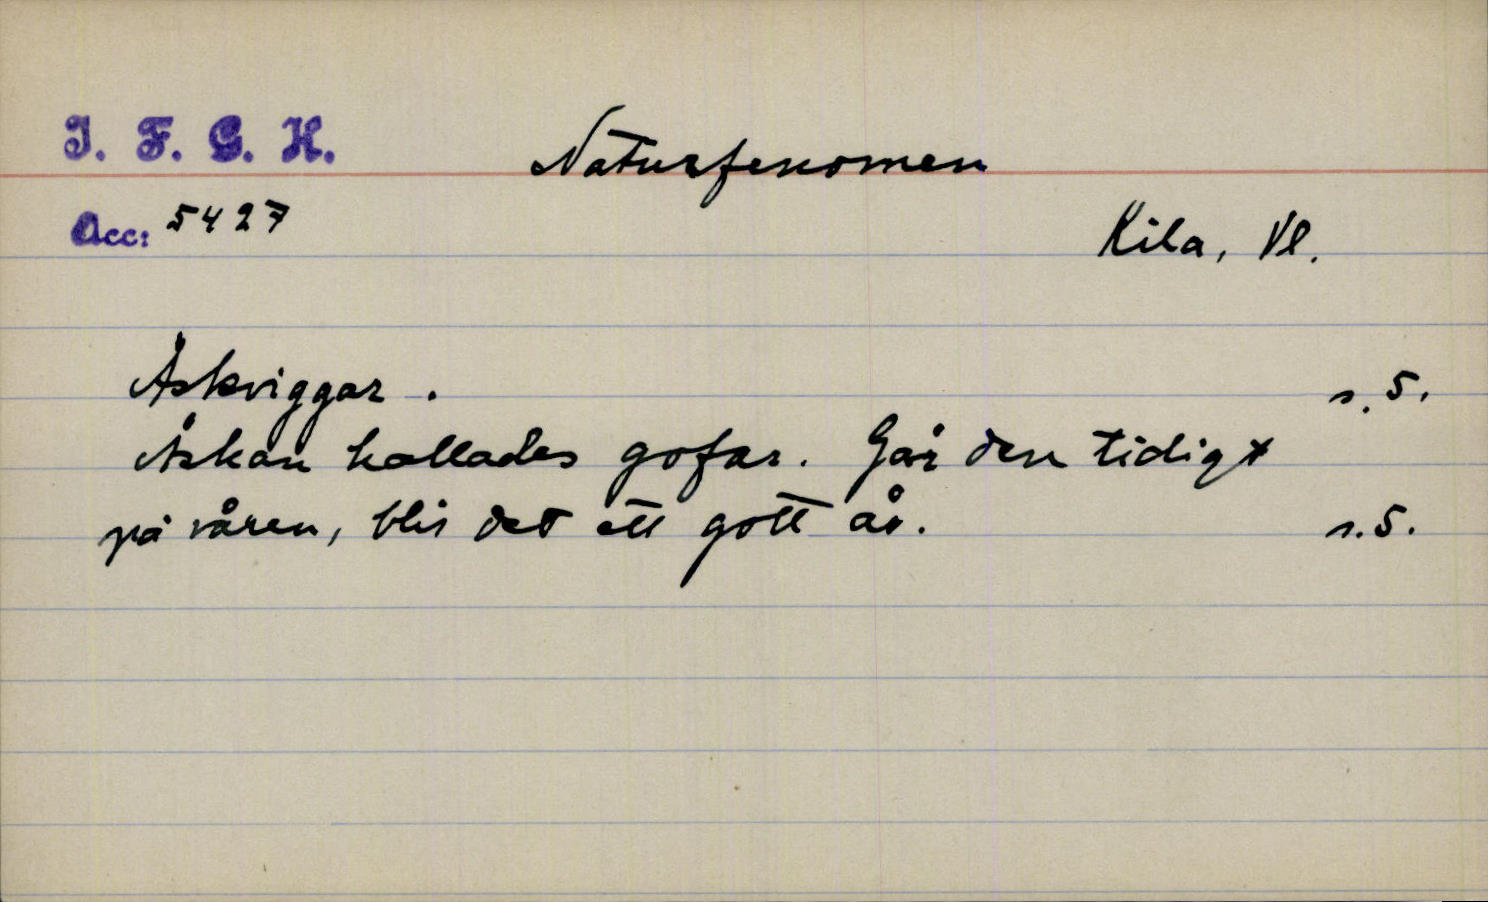 I. F. G. H.
Naturfenomen
Acc: 5427
Kila, Vl.
Åskviggar. s. 5.
Åskan kallades gofar. Går den tidigt
på våren, blir det ett gott år. s. 5.